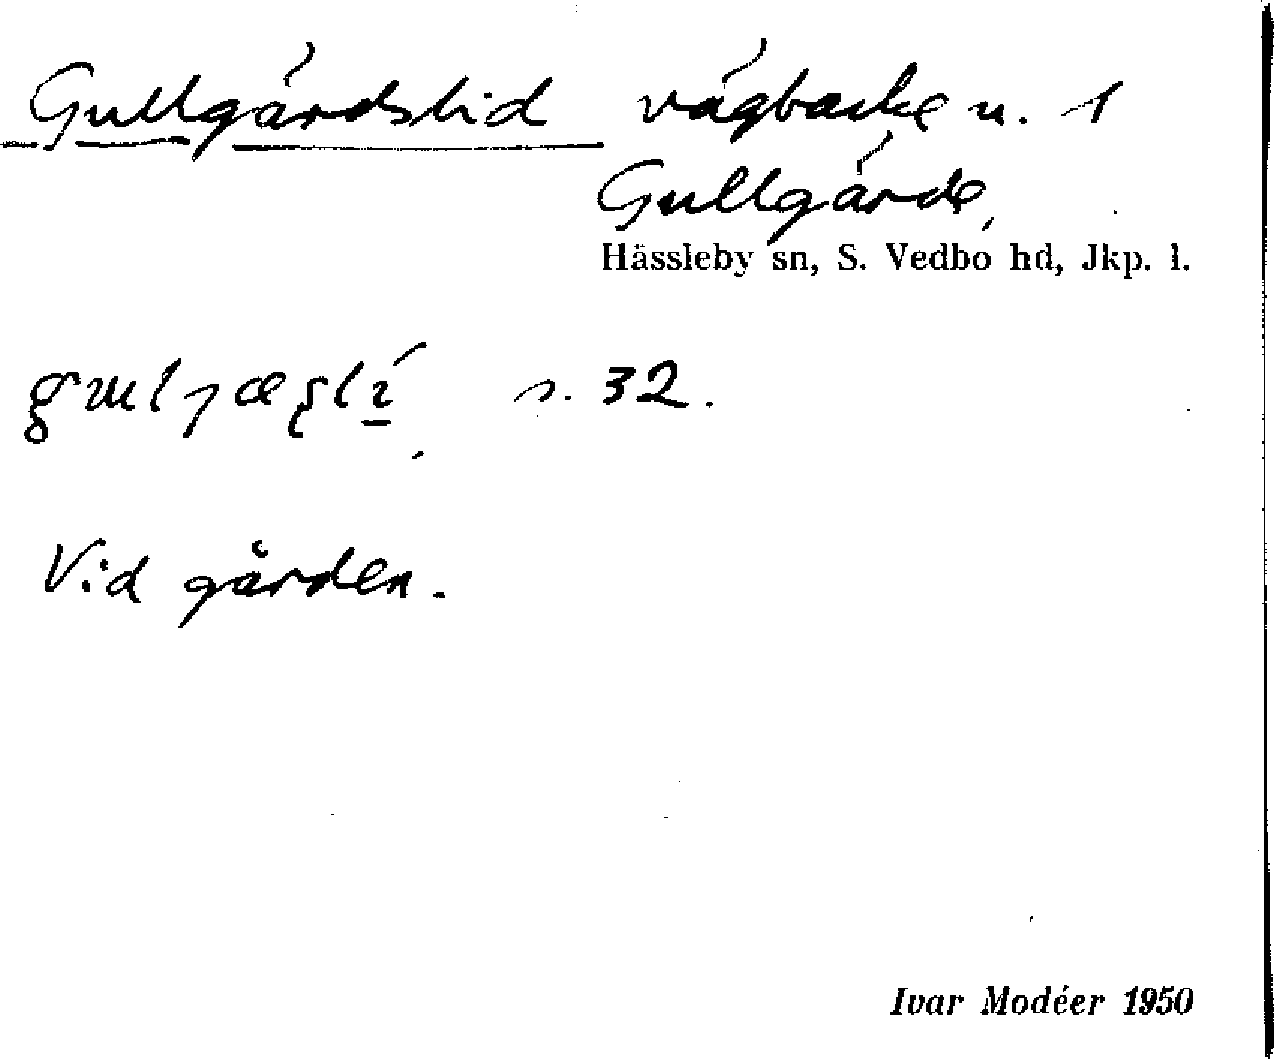 Gullgårdslid vägbacke u. 1
Gullgårde,
Hässleby sn, S. Vedbo hd, Jkp. l.
s. 32.
Vid gården.
Ivar Modéer 1950